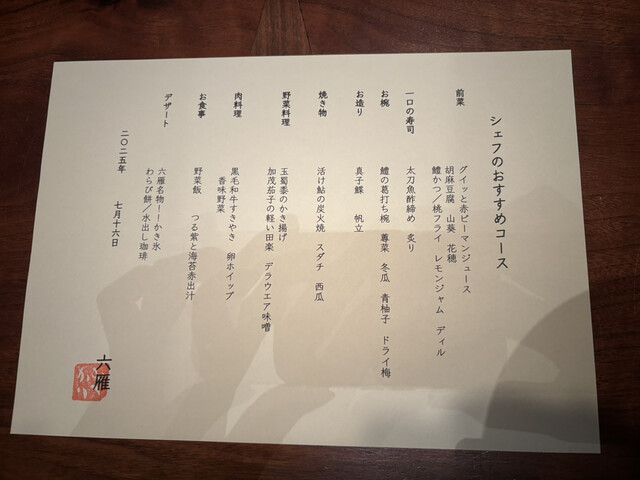 シェフのおすすめコース
前菜
グイッと赤ピーマンジュース
胡麻豆腐 山葵 花穂
鱧かつ／桃フライ レモンジャム ディル
一口の寿司
太刀魚酢締め 炙り
お椀
鱧の葛打ち椀 蓴菜 冬瓜 青柚子 ドライ梅
お造り
真子鰈 帆立
焼き物
活け鮎の炭火焼 スダチ 西瓜
野菜料理
玉蜀黍のかき揚げ
加茂茄子の軽い田楽 デラウエア味噌
肉料理
黒毛和牛すきやき 卵ホイップ
香味野菜
お食事
野菜飯 つる紫と海苔赤出汁
デザート
六雁名物！！かき氷
わらび餅／水出し珈琲
二〇二五年 七月十六日
六雁